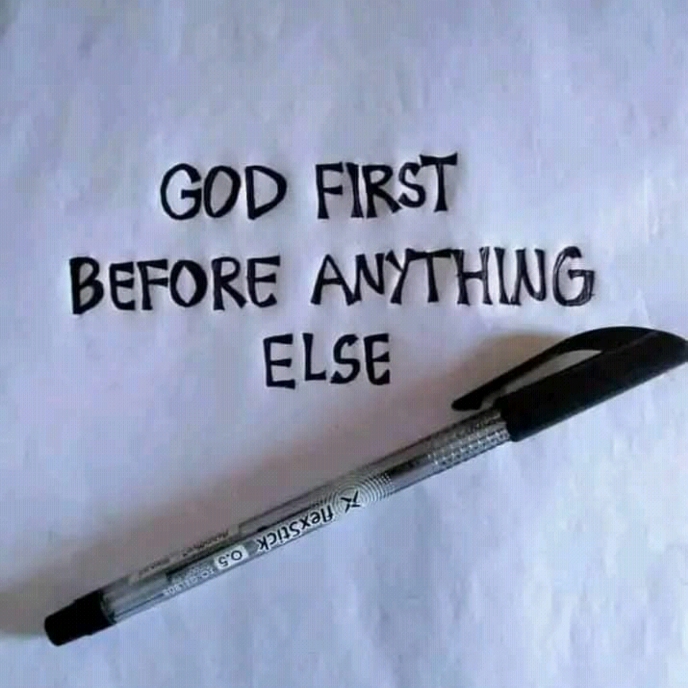 GOD FIRST
BEFORE ANYTHING
ELSE
flexStick 0.5